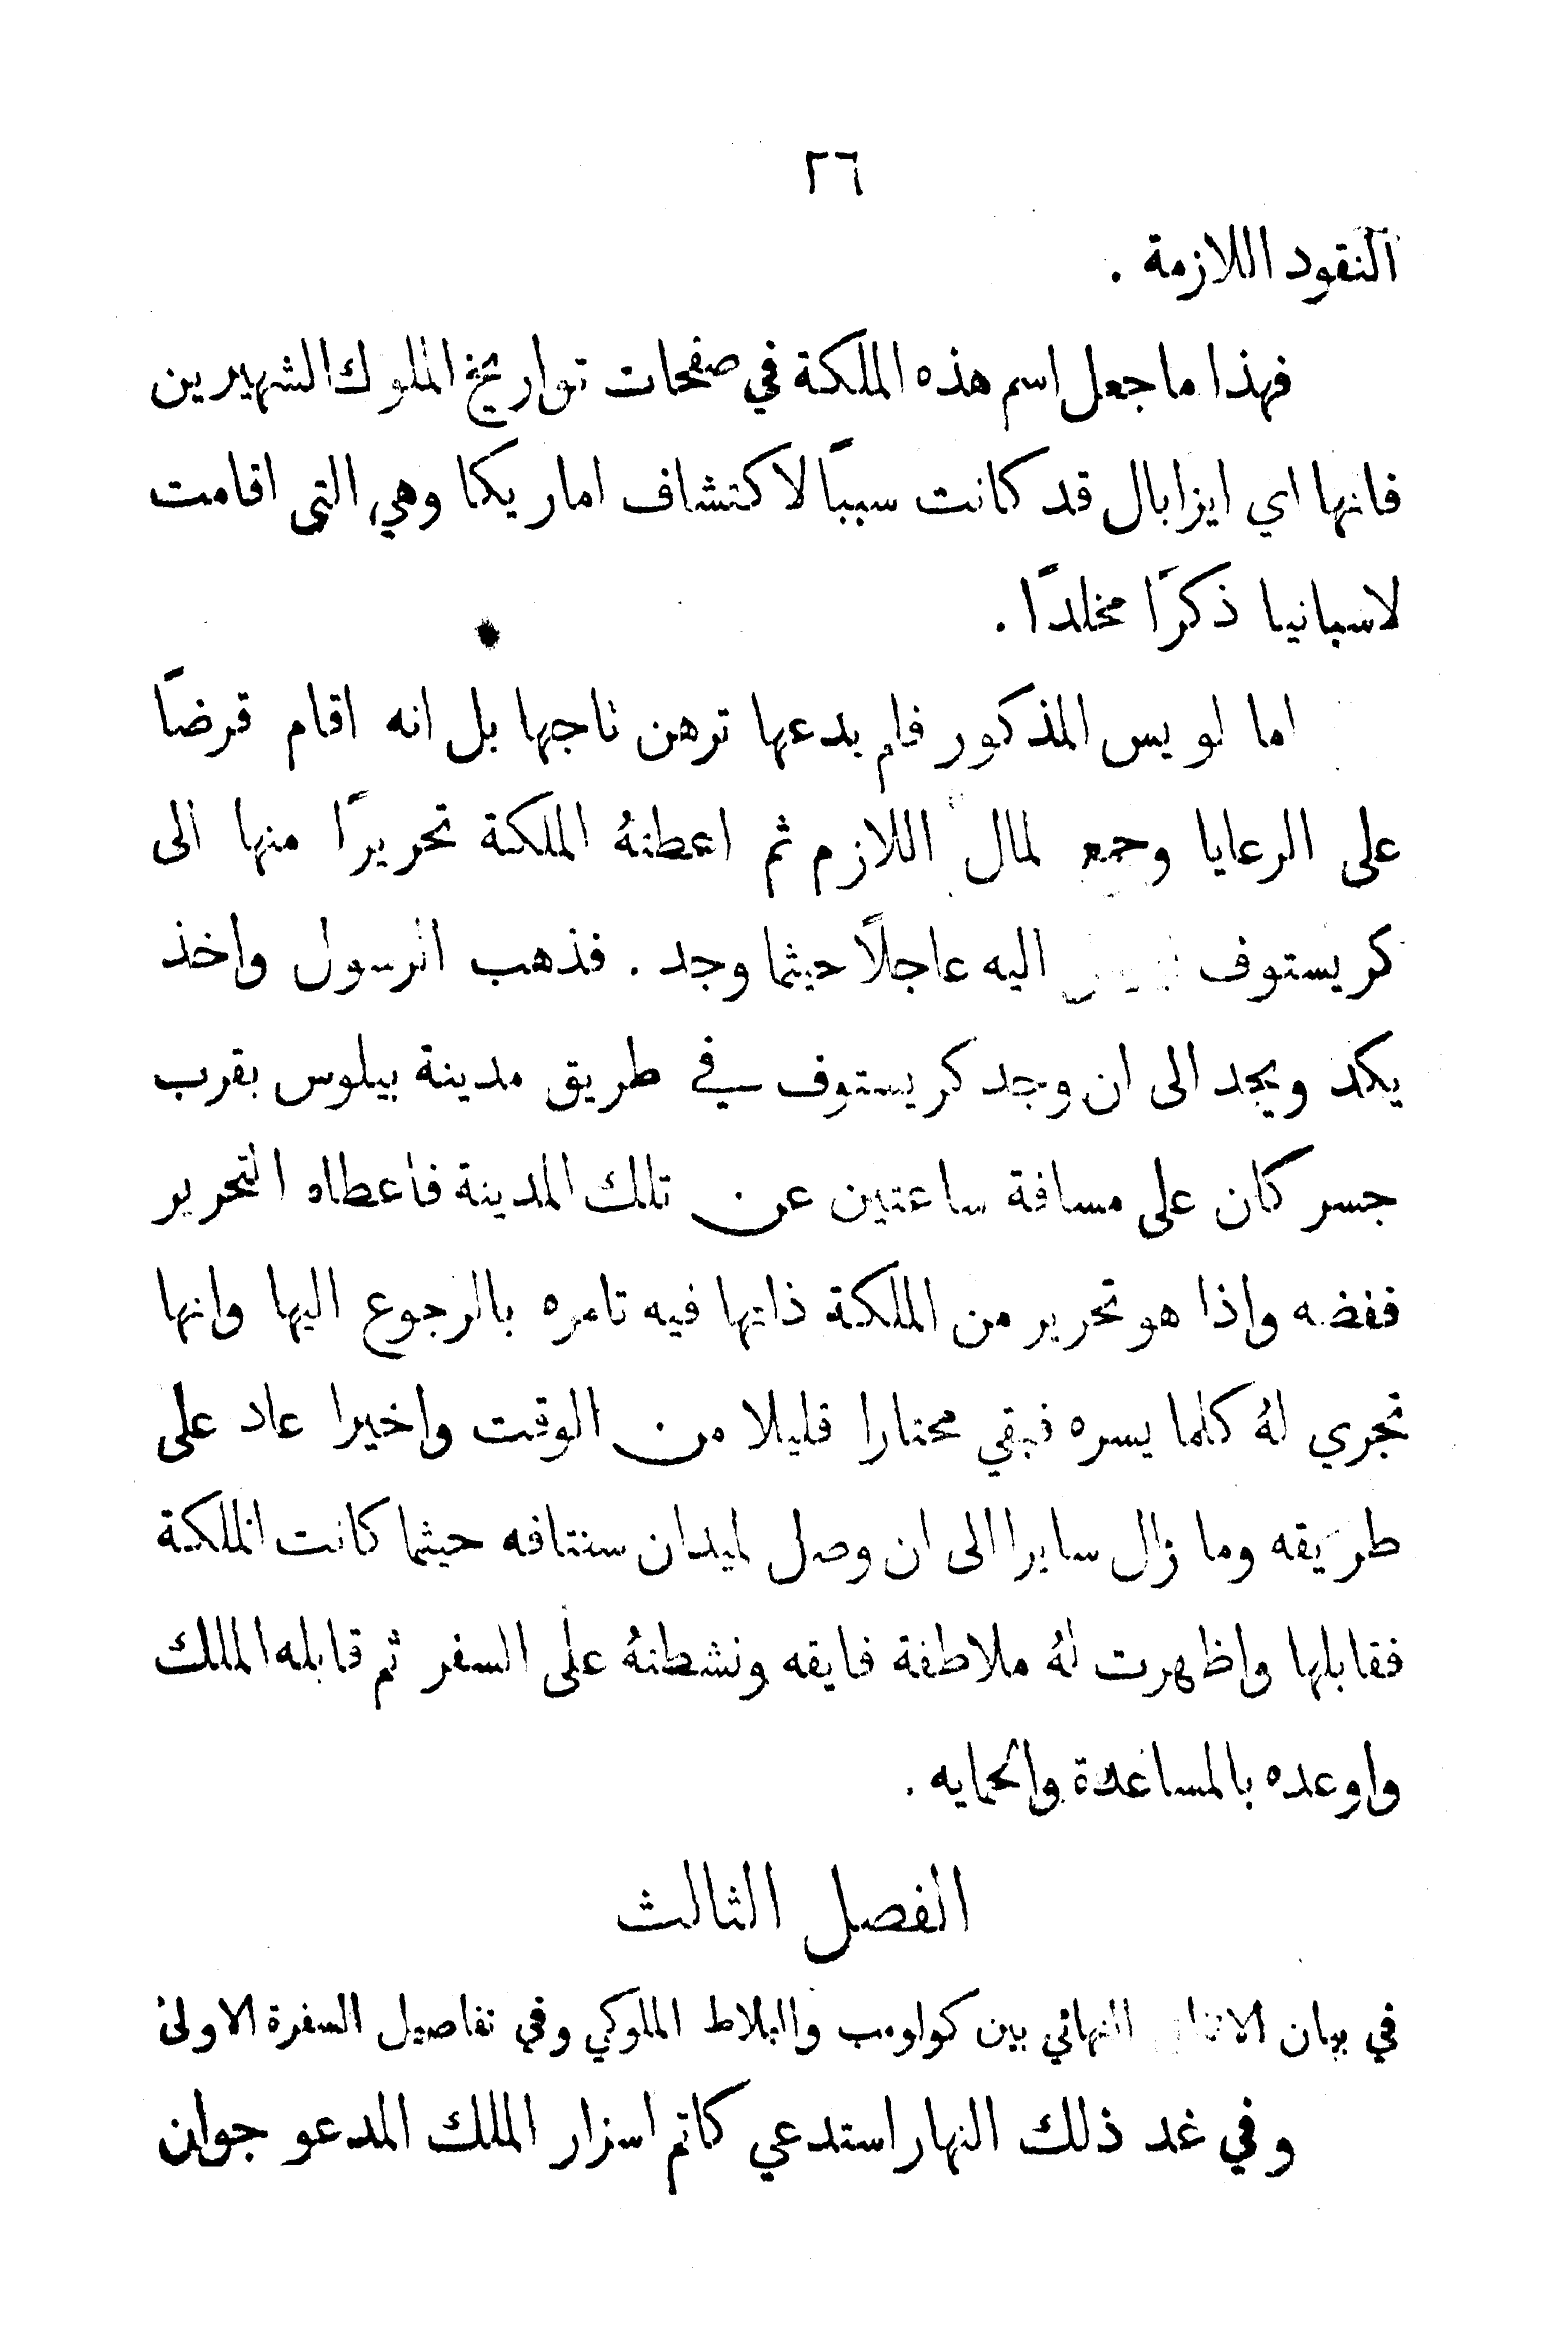 ٢٦
النقود اللازمة .
فهذا ما جعل اسم هذه الملكة في صفحات تواريخ الملوك الشهيرين
فانها اي ايزابال قد كانت سببًا لاكتشاف اماريكا وهي التي اقامت
لاسبانيا ذكرًا مخلدًا .
اما لويس المذكور فلم يدعها ترهن تاجها بل انه اقام قرضًا
على الرعايا وجمع لمال اللازم ثم اعطتهُ الملكة تحريرًا منها الى
كريستوف اليه عاجلًا حيثما وجد . فذهب الرسول واخذ
يكد ويجد الى ان وجد كريستوف في طريق مدينة بيلوس بقرب
جسر كان على مسافة ساعتين عن تلك المدينة فاعطاه التحرير
ففضه واذا هو تحرير من الملكة ذاتها فيه تامره بالرجوع اليها وانها
تجري لهُ كلما يسره فبقي محتارا قليلا من الوقت واخيرا عاد على
طريقه وما زال سايرا الى ان وصل لميدان سنتافه حيثما كانت الملكة
فقابلها واظهرت لهُ ملاطفة فايقه ونشطتهُ على السفر ثم قابله الملك
واوعده بالمساعدة والحمايه .
الفصل الثالث
في بيان النهائي بين كولومب والبلاط الملوكي وفي تفاصيل السفرة الاولى
وفي غد ذلك النهار استدعي كاتم اسرار الملك المدعو جوان